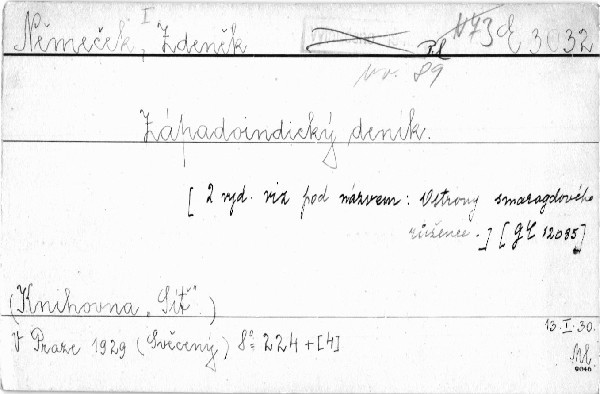 Němeček, Zdeněk I
E 3032
Západoindický deník.
[ 2 vyd. viz pod názvem: Ostrovy smaragdového
růžence.] [GE 12085]
(Knihovna „Síť“.)
13.I.30.
V Praze 1929 (Svěcený) 8° 224 + [4]